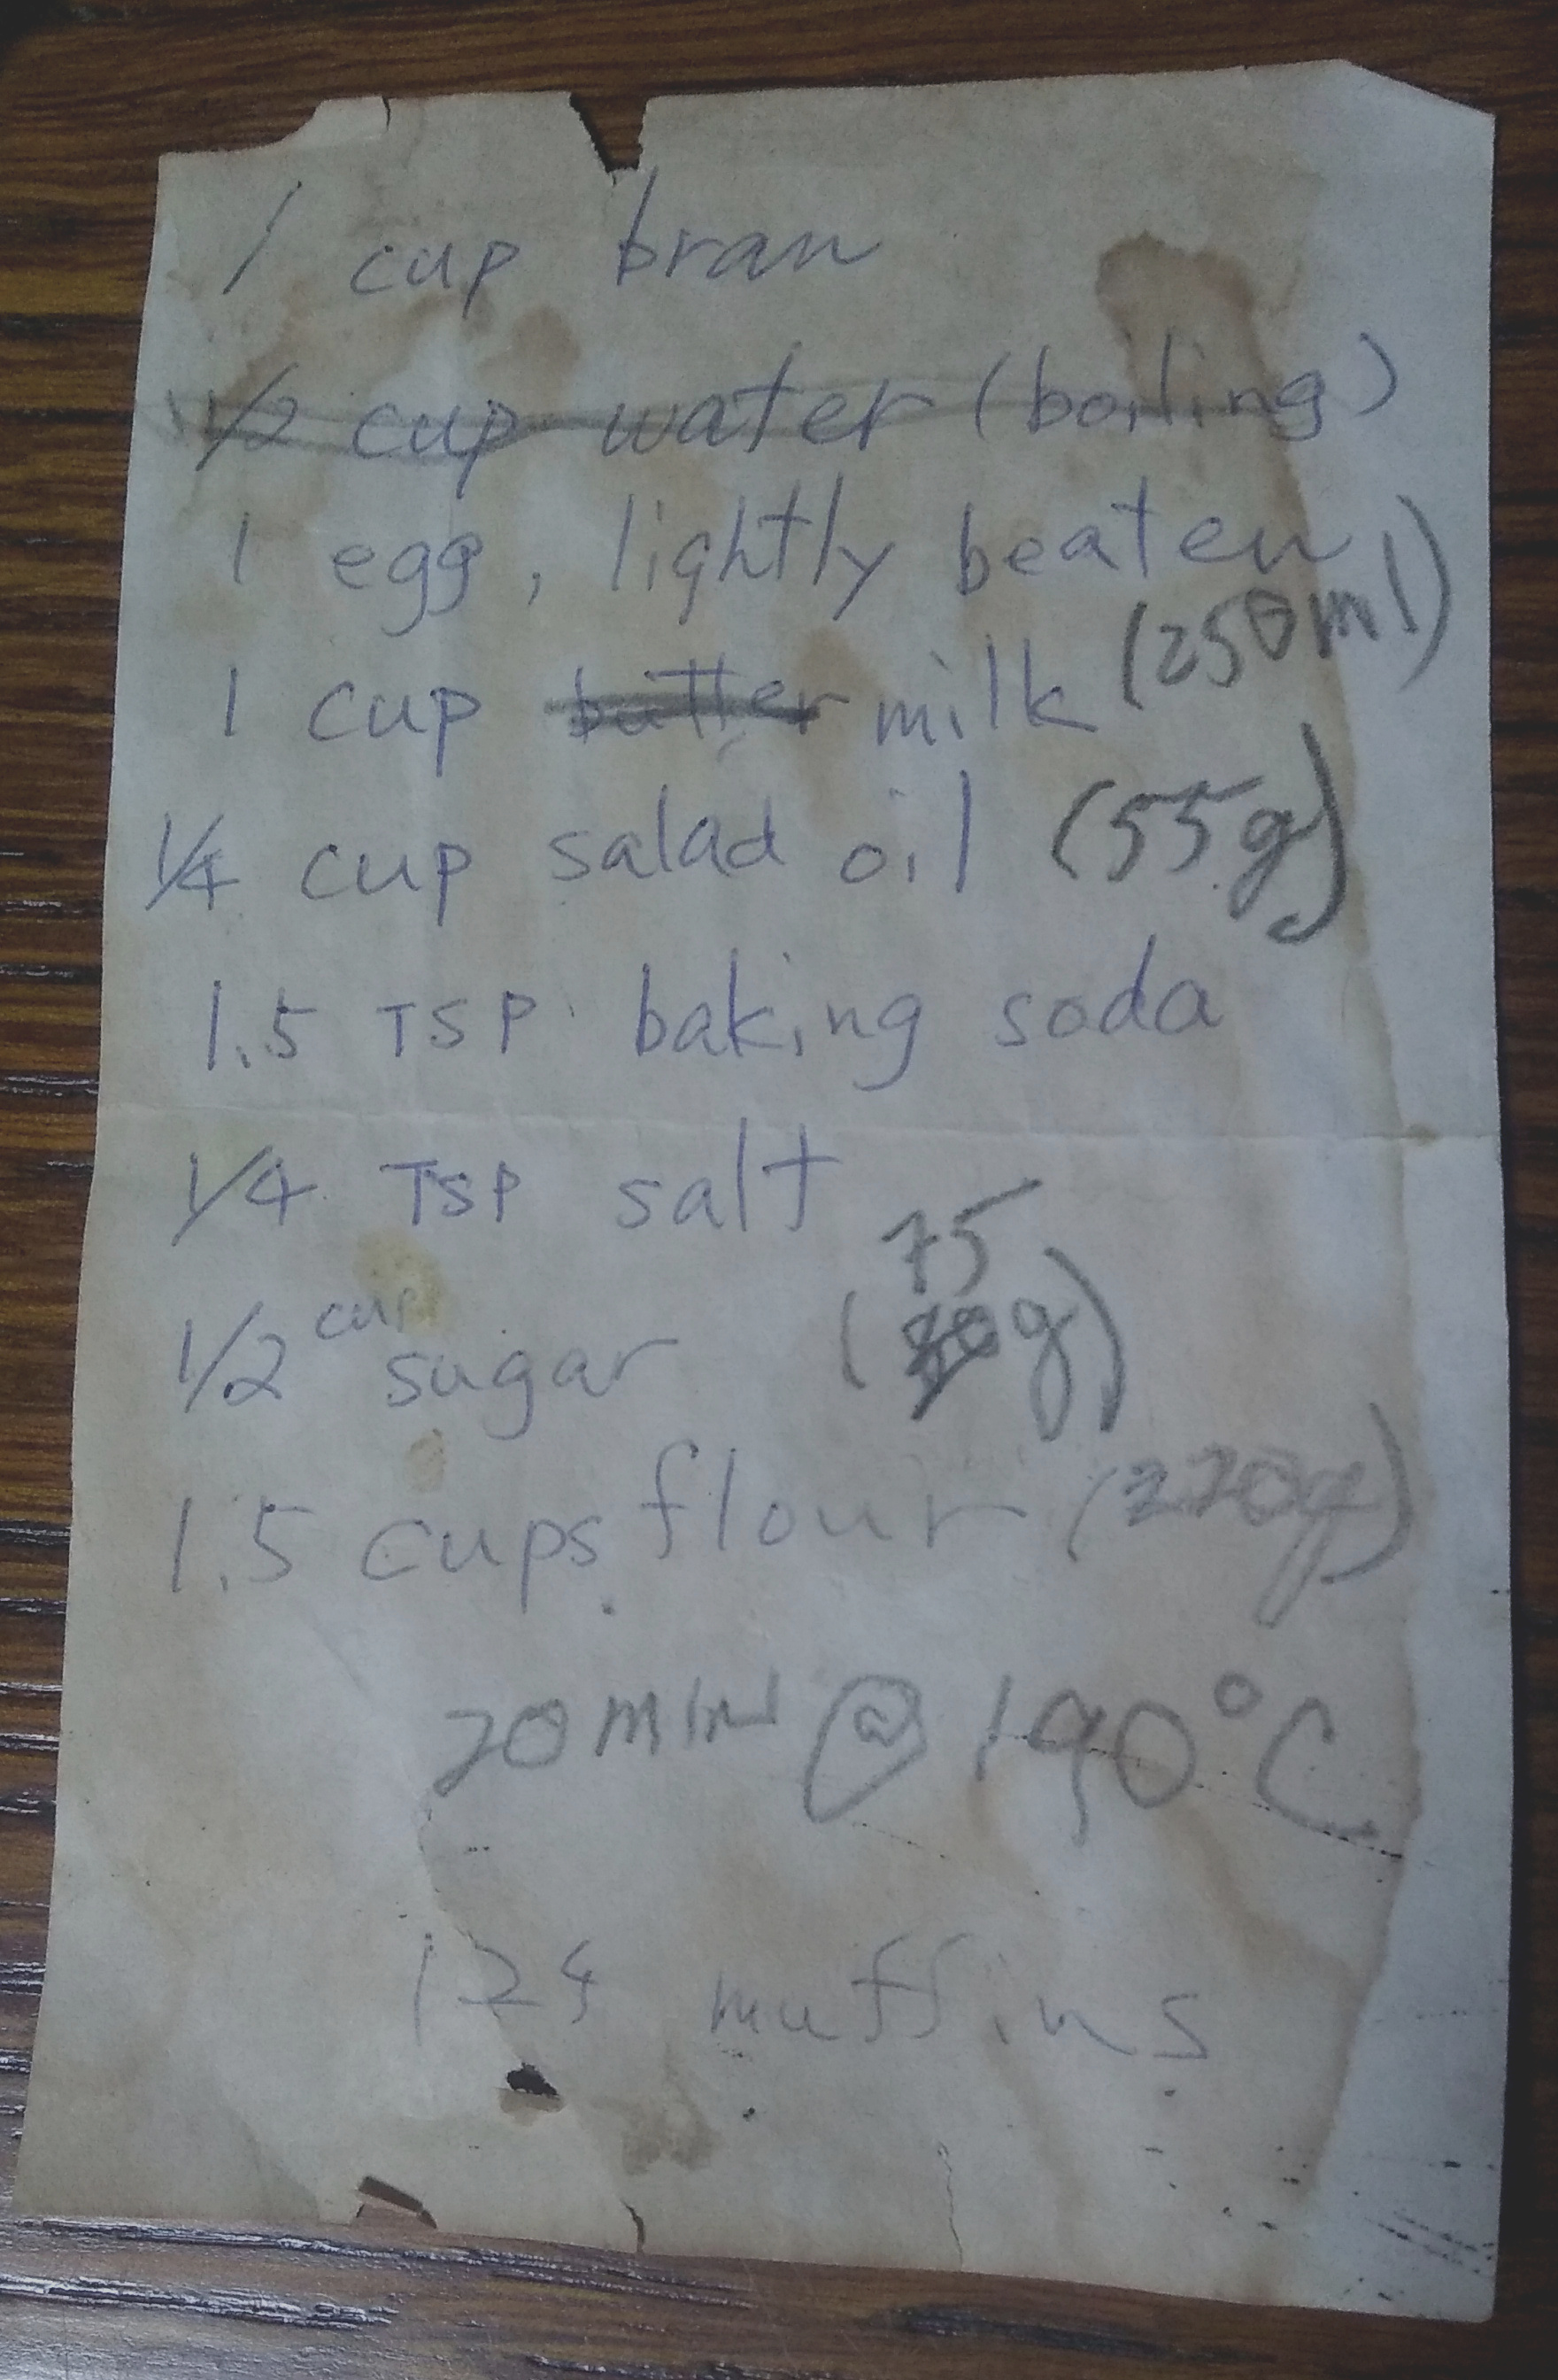 1 cup bran
1/2 cup water (boiling)
1 egg, lightly beaten
1 cup butter milk (250ml)
1/4 cup salad oil (55g)
1.5 TSP baking soda
1/4 TSP salt
75
1/2 cup sugar ( g)
1.5 cups flour (220g)
20 min @ 190°C
muffins